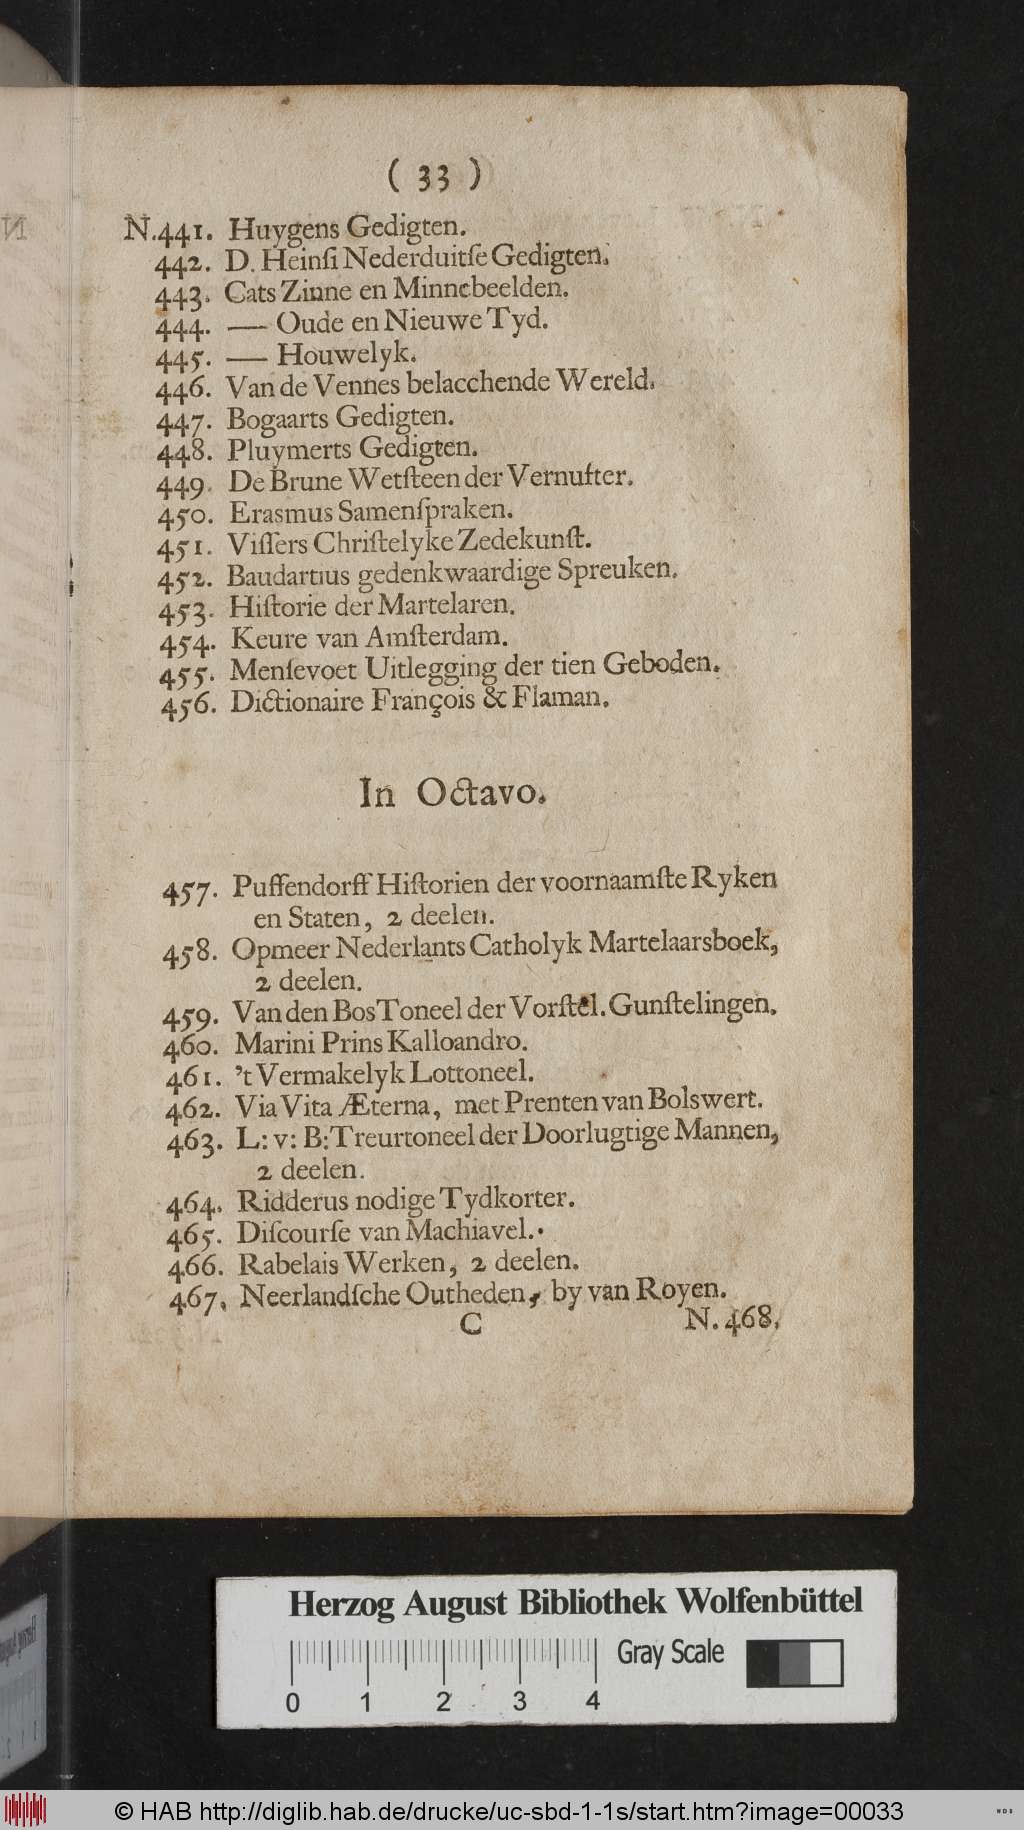 ( 33 )
N.441. Huygens Gedigten.
442. D. Heinſi Nederduitſe Gedigten.
443. Cats Zinne en Minnebeelden.
444. —— Oude en Nieuwe Tyd.
445. —— Houwelyk.
446. Van de Vennes belacchende Wereld.
447. Bogaarts Gedigten.
448. Pluymerts Gedigten.
449. De Brune Wetſteen der Vernufter.
450. Erasmus Samenſpraken.
451. Viſſers Chriſtelyke Zedekunſt.
452. Baudartius gedenkwaardige Spreuken.
453. Hiſtorie der Martelaren.
454. Keure van Amſterdam.
455. Menſevoet Uitlegging der tien Geboden.
456. Dictionaire François & Flaman.
In Octavo.
457. Puffendorff Hiſtorien der voornaamſte Ryken
en Staten, 2 deelen.
458. Opmeer Nederlants Catholyk Martelaarsboek,
2 deelen.
459. Van den Bos Toneel der Vorſtel. Gunſtelingen.
460. Marini Prins Kalloandro.
461. 't Vermakelyk Lottoneel.
462. Via Vita Æterna, met Prenten van Bolswert.
463. L: v: B: Treurtoneel der Doorlugtige Mannen,
2 deelen.
464. Ridderus nodige Tydkorter.
465. Diſcourſe van Machiavel.
466. Rabelais Werken, 2 deelen.
467. Neerlandſche Outheden, by van Royen.
C N. 468.
Herzog August Bibliothek Wolfenbüttel
Gray Scale
0 1 2 3 4
© HAB http://diglib.hab.de/drucke/uc-sbd-1-1s/start.htm?image=00033